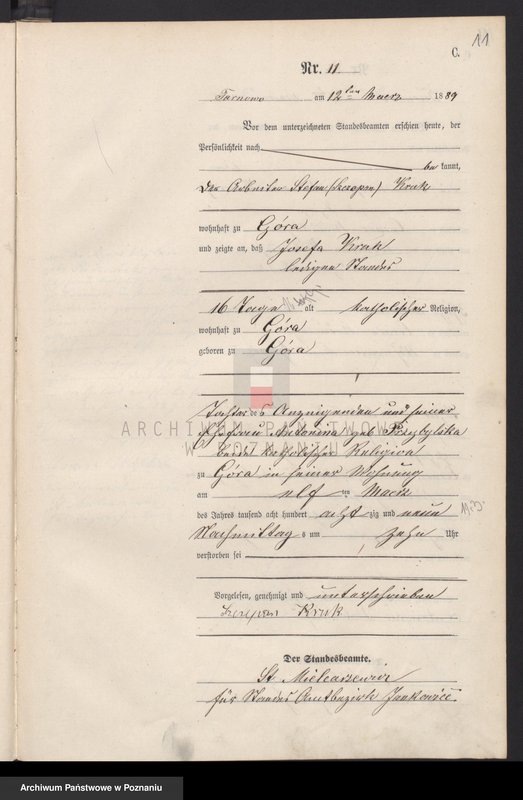 11
C.
Nr. 11.
Tarnowo am 12ten Maerz 1889
Vor dem unterzeichneten Standesbeamten erschien heute, der
Persönlichkeit nach
bekannt,
Der Arbeiter Stefan (Szczepan) Kruk
wohnhaft zu Góra
und zeigte an, daß Josefa Kruk
ledigen Standes
16 Tage alt katholischer Religion,
wohnhaft zu Góra
geboren zu Góra
Tochter des Anzeigenden und seiner
Ehefrau Antonina geb Przybylska
beide katholischer Religion
zu Góra in seiner Wohnung
am elf ten Maerz
des Jahres tausend acht hundert acht zig und neun
Nachmittag s um zehn Uhr
verstorben sei
Vorgelesen, genehmigt und unterschrieben
Szczepan Kruk
Der Standesbeamte.
St Mielcarzewicz
für Standes Amtbezirk Jankowice.
ARCHIWUM PAŃSTWOWE
W POZNANIU
Archiwum Państwowe w Poznaniu